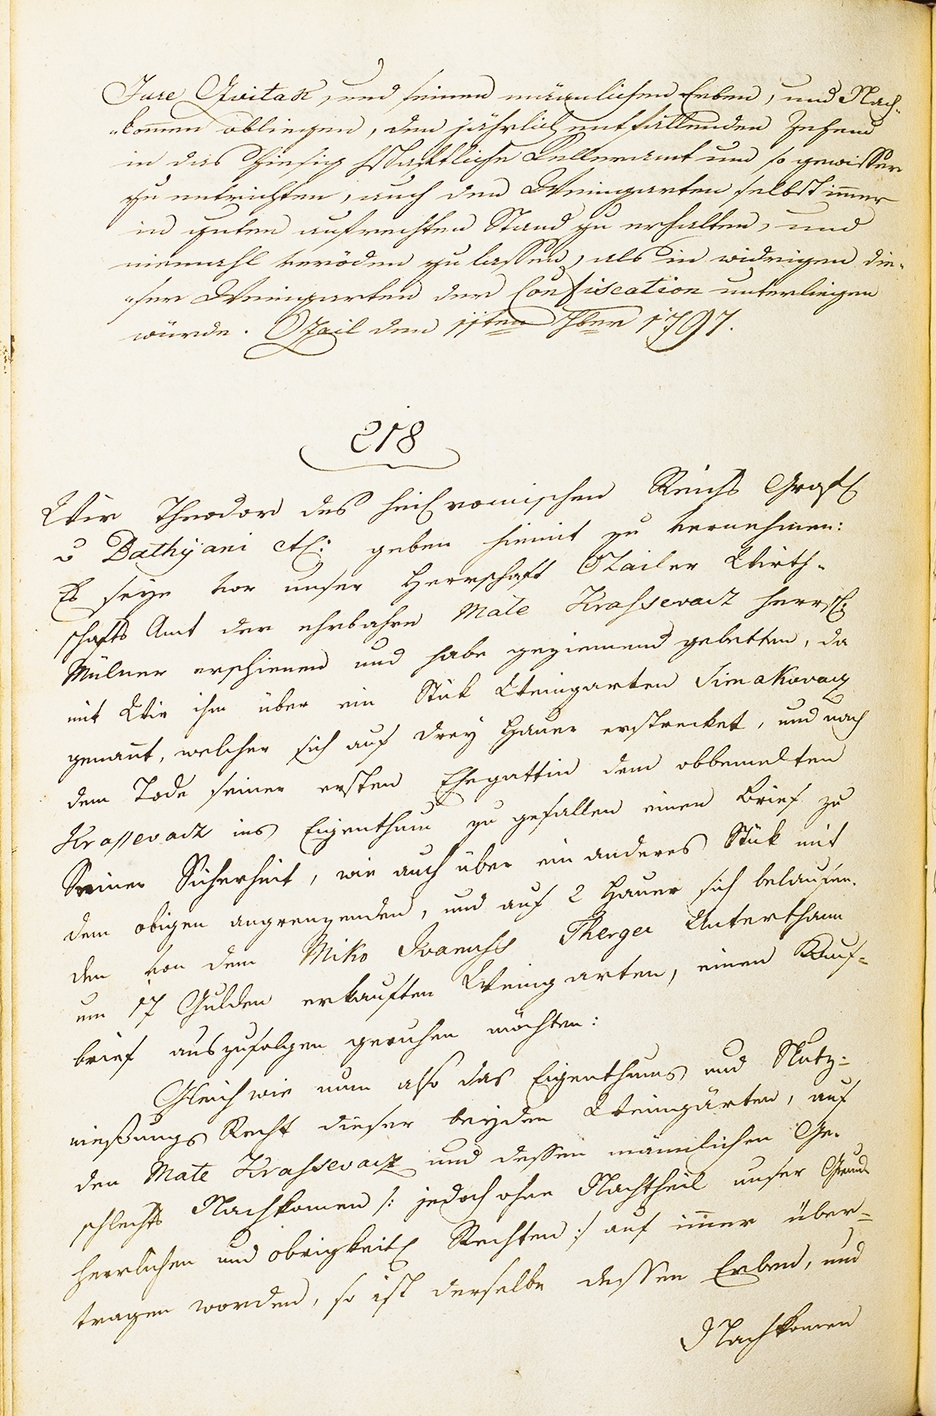 Jure Gvitak, und seinen männlichen Erben, und Nach-
-kommen obliegen, den jährlich entfallenden Zehend
in das hiesig hschaftliche Kelleramt um so gewisser
zu entrichten, auch den Weingarten selbst immer
in guten aufrechten Stand zu erhalten, und
niemahl veröden zu lassen, als in widrigen die-
-ser Weingarten der Confiscation unterliegen
würde. Ozail den 11ten 9ber 1797.
218
Wir Theodor des heil römischen Reichs Graf
v Bathÿani etc: geben hiemit zu vernehmen:
Es seye vor unser Herrschaft Ozailer Wirth-
schafts Amt der ehrbahre Mate Krassevacz herrsch:
Mülner erschienen und habe geziemend gebetten, da
mit Wir ihm über ein Stük Weingarten Simakovacz
genant, welcher sich auf drey Hauer erstrecket, und nach
dem Tode seiner ersten Ehegattin dem obbemelten
Krassevacz ins Eigenthum zu gefallen einen Brief zu
Seiner Sicherheit, wie auch über ein anderes Stük mit
dem obigen angrenzenden, und auf 2 Hauer sich belaufen-
den von dem Miko Therger Unterthann
um 17 Gulden erkauften Weingarten, einen Kauf-
brief auszufolgen geruhen möchten:
Gleich wie nun also das Eigenthums und Nutz-
nießungs Recht dieser beyden Weingärten, auf
den Mate Krassevacz und dessen männlichen Ge-
schlechts Nachkomen /: jedoch ohne Nachtheil unser Grund
herrlichen und obrigkeitl Rechten :/ auf immer über-
tragen worden, so ist derselbe dessen Erben, und
Nachkomen